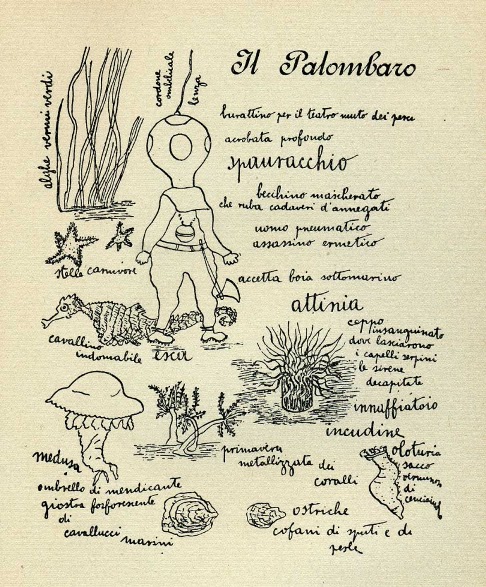 Il Palombaro
alghe vermi verdi
cordone
ombelicale
lenza
burattino per il teatro muto dei pesci
acrobata profondo
spauracchio
becchino mascherato
che ruba cadaveri d'annegati
uomo pneumatico
assassino ermetico
stelle carnivore
accetta boia sottomarino
attinia
ceppo
insanguinato
dove lasciarono
i capelli serpini
le sirene
decapitate
cavallino
indomabile
esca
innaffiatoio
incudine
medusa
ombrello di mendicante
giostra fosforescente
di
cavallucci
marini
primavera
metallizzata dei
coralli
oloturia
sacco
di
ostriche
cofani di sputi e di
perle